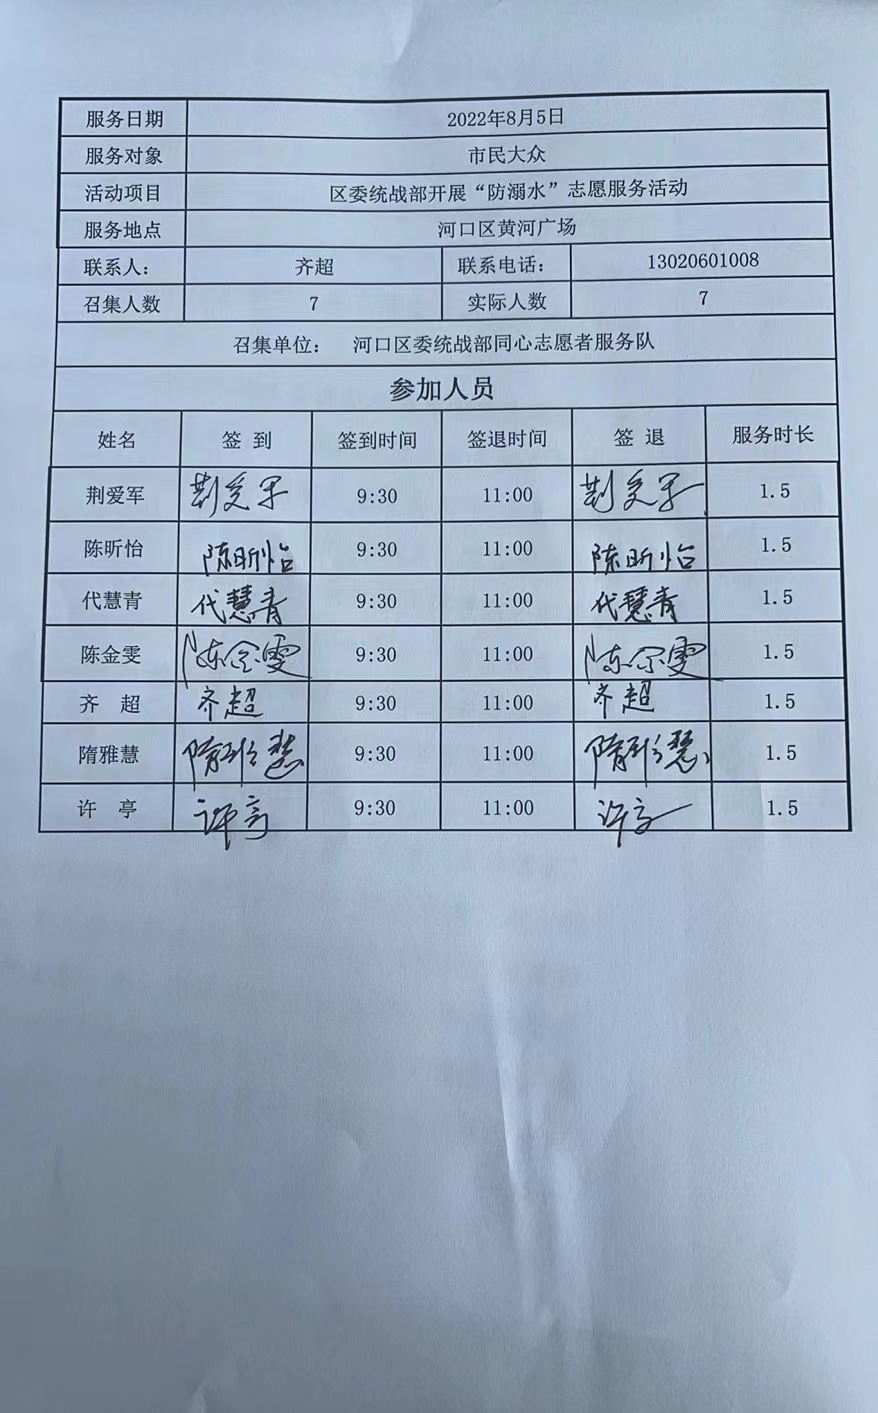 服务日期 2022年8月5日
服务对象 市民大众
活动项目 区委统战部开展“防溺水”志愿服务活动
服务地点 河口区黄河广场
联系人： 齐超 联系电话： 13020601008
召集人数 7 实际人数 7
召集单位： 河口区委统战部同心志愿者服务队
参加人员
姓名 签 到 签到时间 签退时间 签 退 服务时长
荆爱军 荆爱军 9:30 11:00 荆爱军 1.5
陈昕怡 陈昕怡 9:30 11:00 陈昕怡 1.5
代慧青 代慧青 9:30 11:00 代慧青 1.5
陈金雯 陈金雯 9:30 11:00 陈金雯 1.5
齐 超 齐超 9:30 11:00 齐超 1.5
隋雅慧 隋雅慧 9:30 11:00 隋雅慧 1.5
许 亭 许亭 9:30 11:00 许亭 1.5